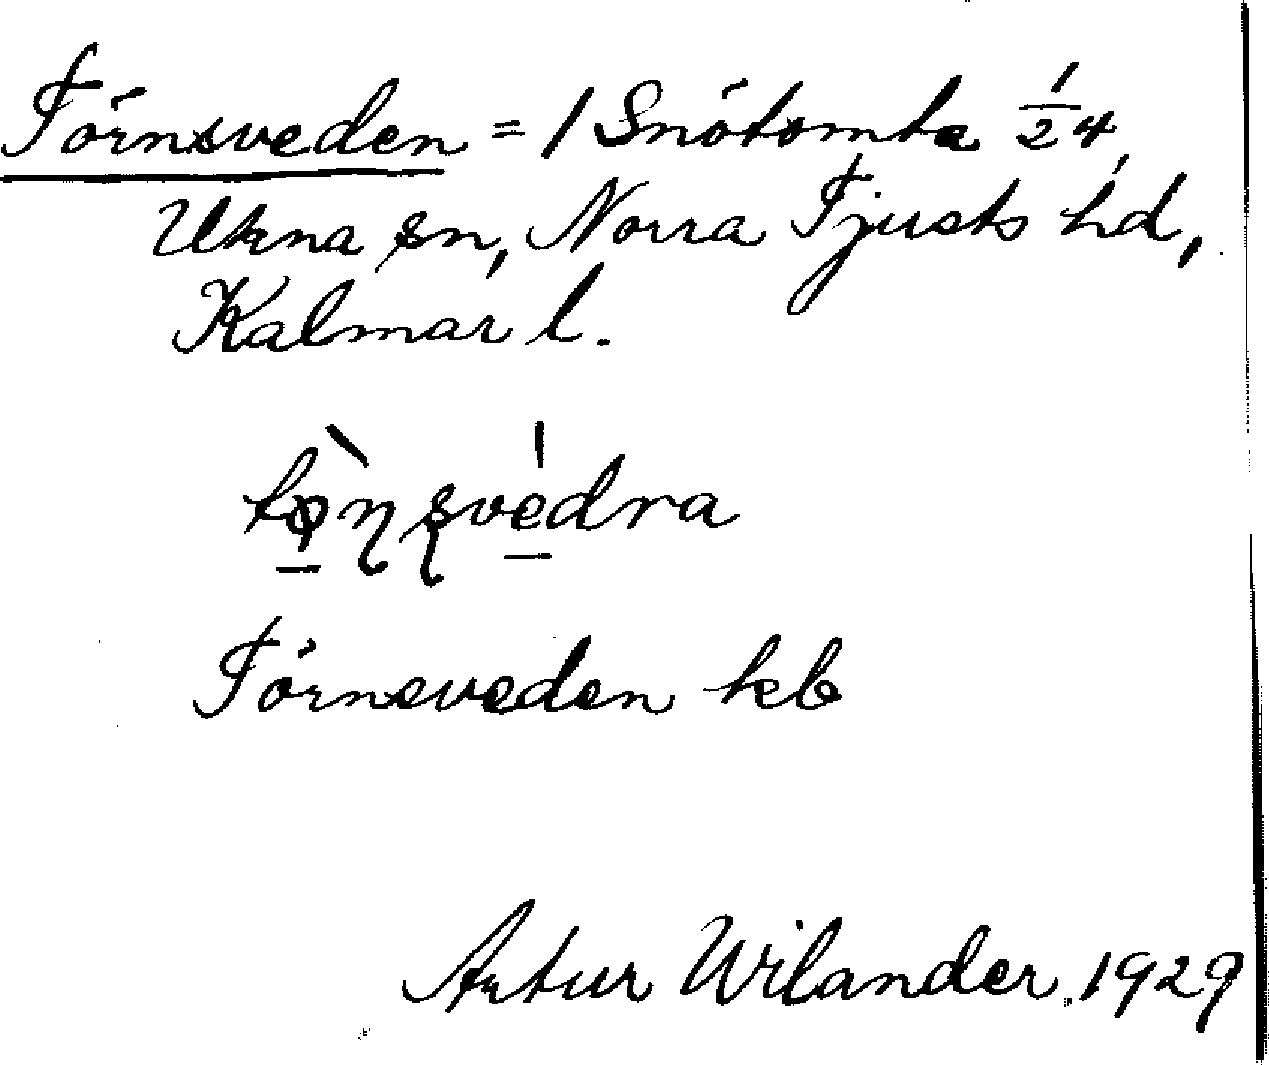 Törnsveden = / Snötomta 1/24,
Ukna sn, Norra Tjusts hd,
Kalmar l.
Törnsveden kb
Artur Wilander. 1929